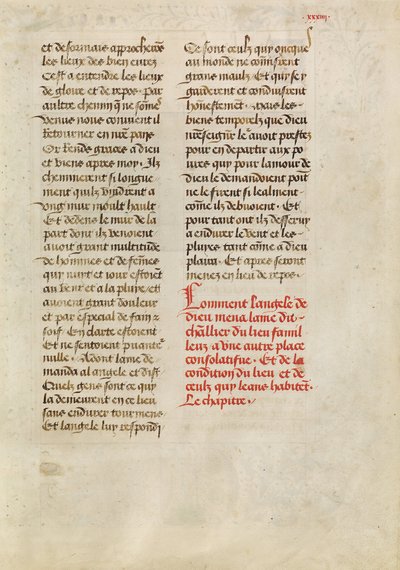 xxxiiij
et desormais approcherõs
les lieux des bien eurez
Cest a entendre les lieux
de gloire et de repos. par
aultre chemin que ne sõmes
venue nous conuient il
retourner en nr̃e pays
Or rends graces a dieu
et viens apres moy. Ilz
cheminerent si longue
ment quilz vindrent a
vng mur moult hault
Et dedens le mur de la
part dont ilz venoient
auoit grant multitude
de hommes et de fẽmes
qui nuit et iour estoient
au vent et a la pluye. et
auoient grant douleur
et par especial de faim z
soif. En clarte estoient
Et ne sentoient puantr̃e
nulle. Adont lame de
manda al angele et dist
Quelz gens sont ce qui
la demeurent en ce lieu
sans endurer tourmens
Et langele luy respondi
Ce sont ceulz quy oncque
au monde ne cõmirent
grans maulz. Et qui se y
guiderent et conduirent
honnestement. mais les
biens temporelz que dieu
nr̃e seignr̃ le auoit prestez
pour en departir aux po
ures quy pour lamour de
dieu le demandoient point
ne le firent si lealment
cõme ilz debuoient. Et
pour tant ont ilz desseruy
a endurer le vent et les
pluyes tant cõme a dieu
plaira. Et apres seront
menez en lieu de repos.
Comment langele de
dieu mena lame du
chãllier du lieu famil
leux a vne autre place
consolatifue. Et de la
condition du lieu et de
ceulz quy leans habitẽt.
Le chapitre.